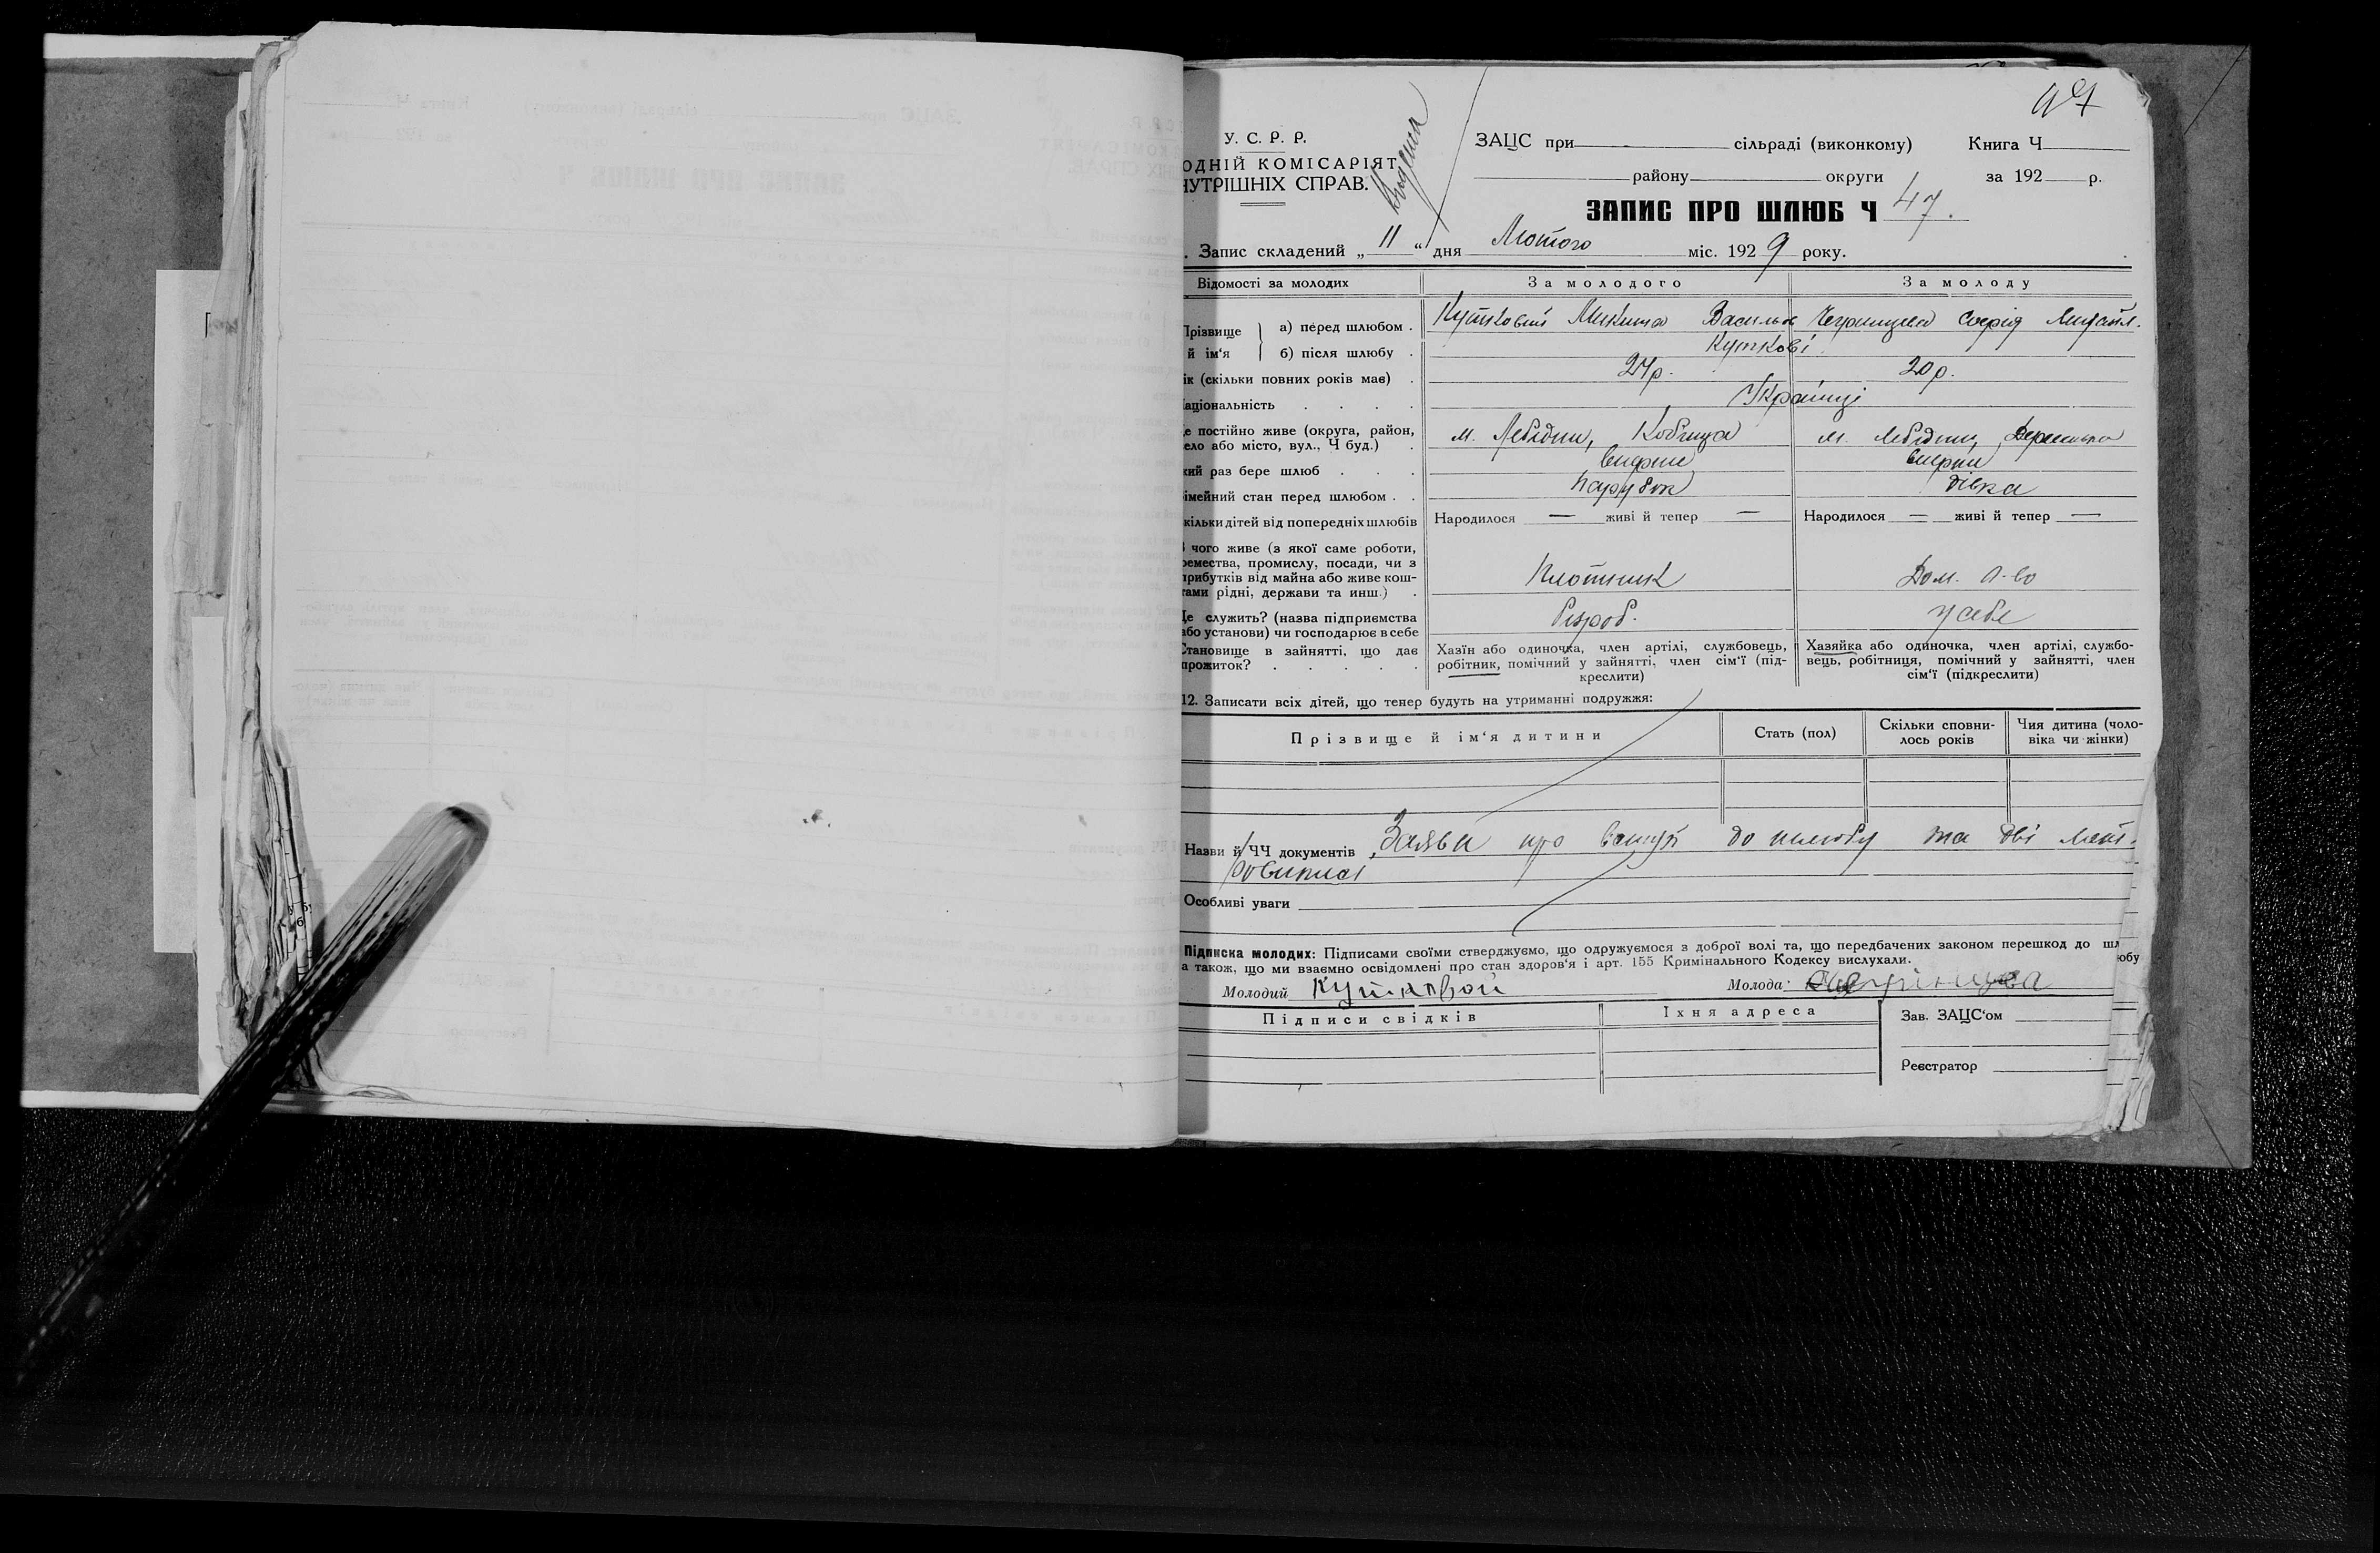 47
Видана
У. С. Р. Р.
ОДНІЙ КОМІСАРІЯТ
НУТРІШНІХ СПРАВ.
ЗАЦС при сільраді (виконкому) Книга Ч
району округи за 192 р.
ЗАПИС ПРО ШЛЮБ Ч 47.
. Запис складений „ 11 “ дня Лютого міс. 1929 року.
Відомості за молодих За молодого За молоду
Прізвище й ім‘я
а) перед шлюбом . Кутковий Микита Васильов Чернищева Софія Михайл.
б) після шлюбу . Куткові
ік (скільки повних років має) . 24 р. 20 р.
аціональність . . . . Українці
е постійно живе (округа, район,
ело або місто, вул., Ч буд.) . м. Лебідин, Кобчица м. Лебідин,
кий раз бере шлюб . . . вперше вперше
імейний стан перед шлюбом . . парубок дівка
кільки дітей від попередніх шлюбів Народилося — живі й тепер — Народилося — живі й тепер —
чого живе (з якої саме роботи,
ремества, промислу, посади, чи з
прибутків від майна або живе кош-
тами рідні, держави та инш.) . Плотник Дом. г-во
Де служить? (назва підприємства
або установи) чи господарює в себе у себе
Становище в зайнятті, що дає
прожиток? . . . . .
Хазїн або одиночка, член артілі, службовець,
робітник, помічний у зайнятті, член сім‘ї (під-
креслити)
Хазяйка або одиночка, член артілі, службо-
вець, робітниця, помічний у зайнятті, член
сім‘ї (підкреслити)
12. Записати всіх дітей, що тепер будуть на утриманні подружжя:
Прізвище й ім‘я дитини Стать (пол) Скільки сповни-
лось років Чия дитина (чоло-
віка чи жінки)
Назви й ЧЧ документів Заява про вступ до шлюбу та дві мет-
ровиписі
Особливі уваги
Підписка молодих: Підписами своїми стверджуємо, що одружуємося з доброї волі та, що передбачених законом перешкод до шл
юбу
а також, що ми взаємно освідомлені про стан здоров‘я і арт. 155 Кримінального Кодексу вислухали.
Молодий Кутковой Молода:
Підписи свідків Їхня адреса Зав. ЗАЦС‘ом
Реєстратор